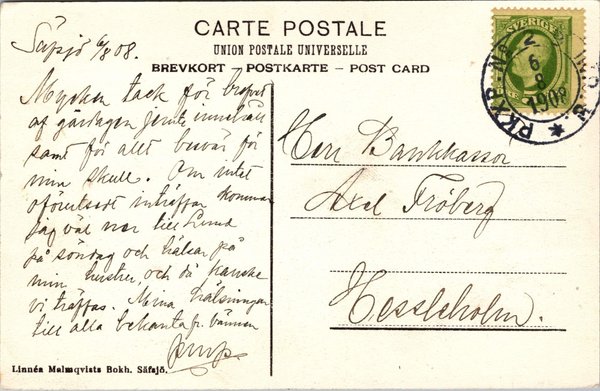 CARTE POSTALE
UNION POSTALE UNIVERSELLE
BREVKORT — POSTKARTE — POST CARD
SVERIGE
PKXP
6
8
1908
Säfsjö 6/8 08.
Mycken tack för brefvet
af gårdagen jemte innehåll
samt för allt besvär för
min skull. Om intet
oförutsedt inträffar kommer
jag väl ner till Lund
på söndag och hälsar på
min hustru, och då kanske
vi träffas. Mina hälsningar
till alla bekanta fr. vännen
Herr Bankkassor
Axel Fröberg
Hessleholm.
Linnéa Malmqvists Bokh. Säfsjö.